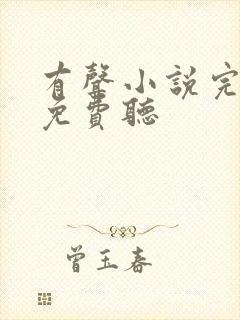 有聲小說完
免費聽
曾玉春